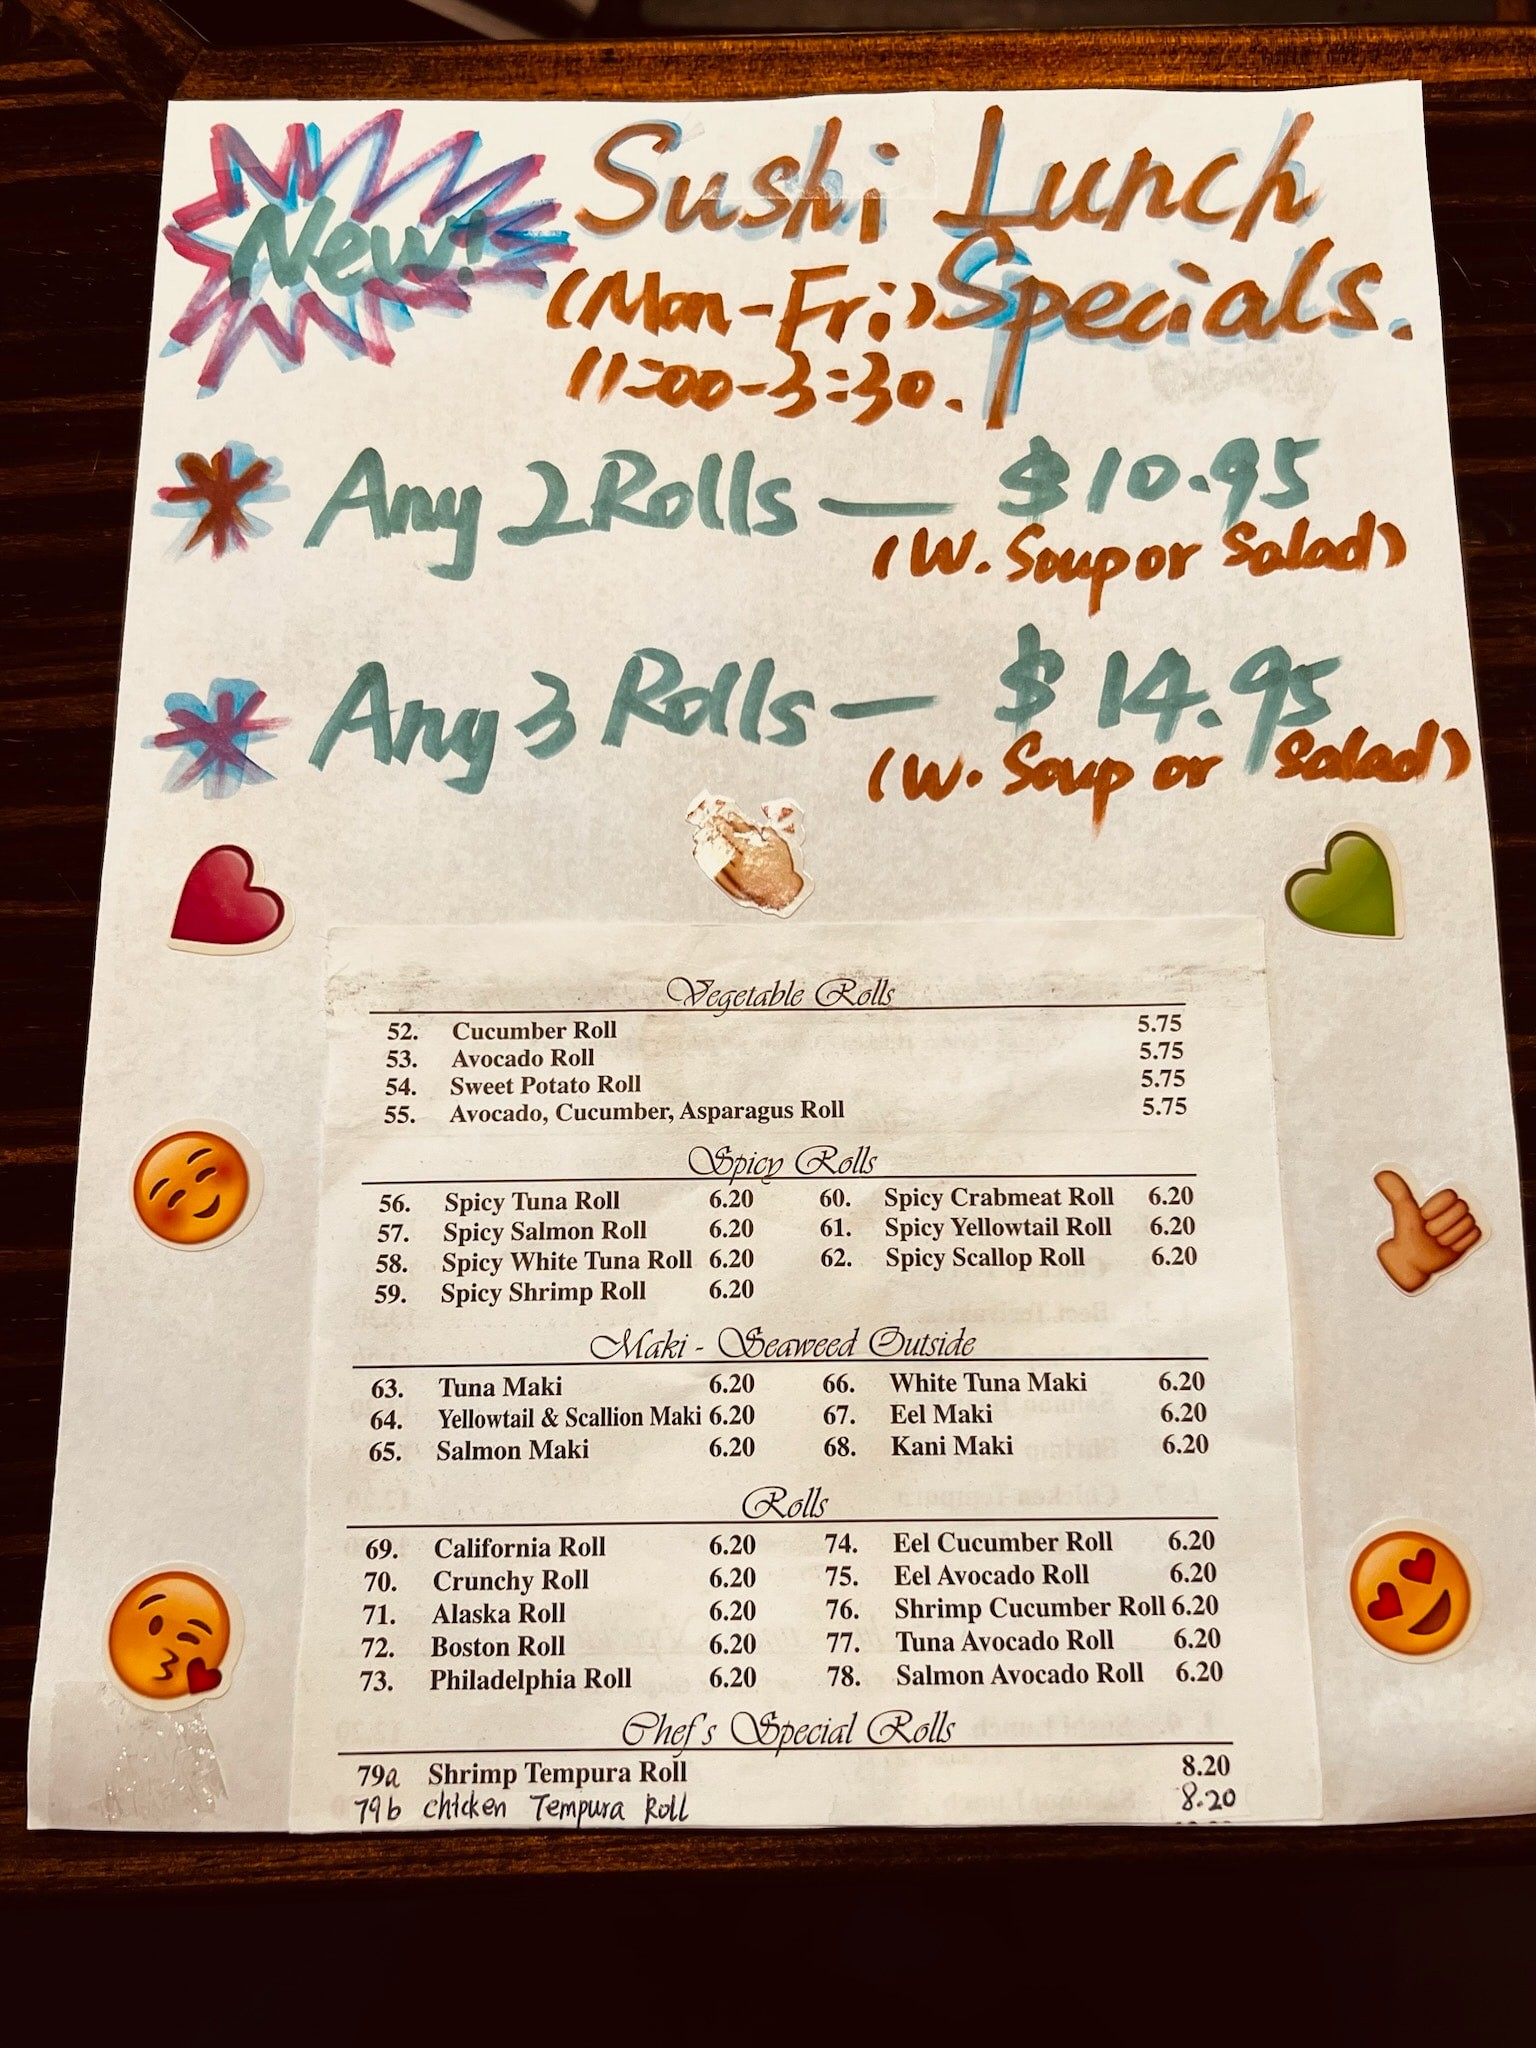 New!
Sushi Lunch
Specials.
(Mon-Fri)
11:00-3:30.
* Any 2 Rolls — $10.95
(W. Soup or Salad)
* Any 3 Rolls — $14.95
(W. Soup or Salad)
Vegetable Rolls
52. Cucumber Roll 5.75
53. Avocado Roll 5.75
54. Sweet Potato Roll 5.75
55. Avocado, Cucumber, Asparagus Roll 5.75
Spicy Rolls
56. Spicy Tuna Roll 6.20 60. Spicy Crabmeat Roll 6.20
57. Spicy Salmon Roll 6.20 61. Spicy Yellowtail Roll 6.20
58. Spicy White Tuna Roll 6.20 62. Spicy Scallop Roll 6.20
59. Spicy Shrimp Roll 6.20
Maki - Seaweed Outside
63. Tuna Maki 6.20 66. White Tuna Maki 6.20
64. Yellowtail & Scallion Maki 6.20 67. Eel Maki 6.20
65. Salmon Maki 6.20 68. Kani Maki 6.20
Rolls
69. California Roll 6.20 74. Eel Cucumber Roll 6.20
70. Crunchy Roll 6.20 75. Eel Avocado Roll 6.20
71. Alaska Roll 6.20 76. Shrimp Cucumber Roll 6.20
72. Boston Roll 6.20 77. Tuna Avocado Roll 6.20
73. Philadelphia Roll 6.20 78. Salmon Avocado Roll 6.20
Chef's Special Rolls
79a Shrimp Tempura Roll 8.20
79b chicken Tempura Roll 8.20